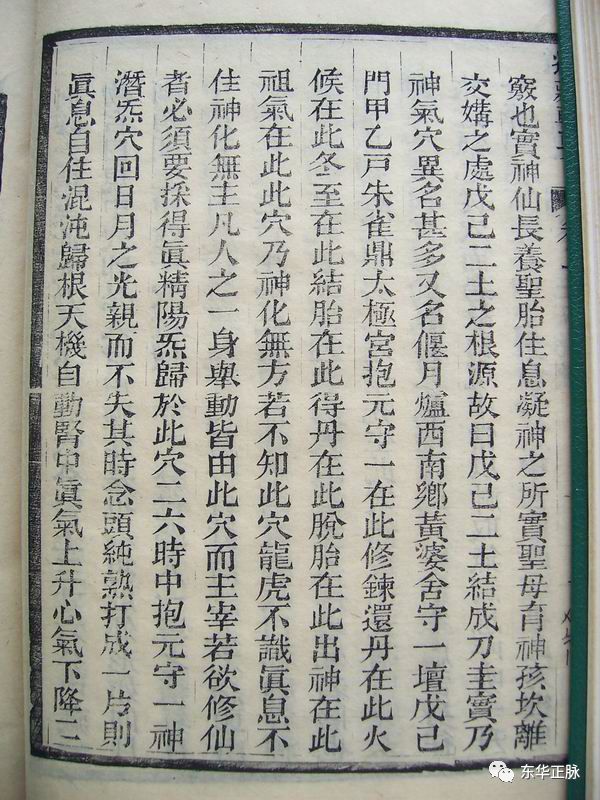 竅也實神仙長養聖胎住息凝神之所實聖母育神孩坎離
交媾之處戊己二土之根源故曰戊己二土結成刀圭實乃
神氣穴異名甚多又名偃月爐西南鄉黃婆舍守一壇戊己
門甲乙戸朱雀鼎太極宮抱元守一在此修鍊還丹在此火
候在此冬至在此結胎在此得丹在此脫胎在此出神在此
祖氣在此此穴乃神化無方若不知此穴龍虎不識眞息不
住神化無主凡人之一身舉動皆由此穴而主宰若欲修仙
者必須要採得眞精陽炁歸於此穴二六時中抱元守一神
潛炁穴回日月之光親而不失其時念頭純熟打成一片則
眞息自住混沌歸根天機自動腎中眞氣上升心氣下降二
东华正脉